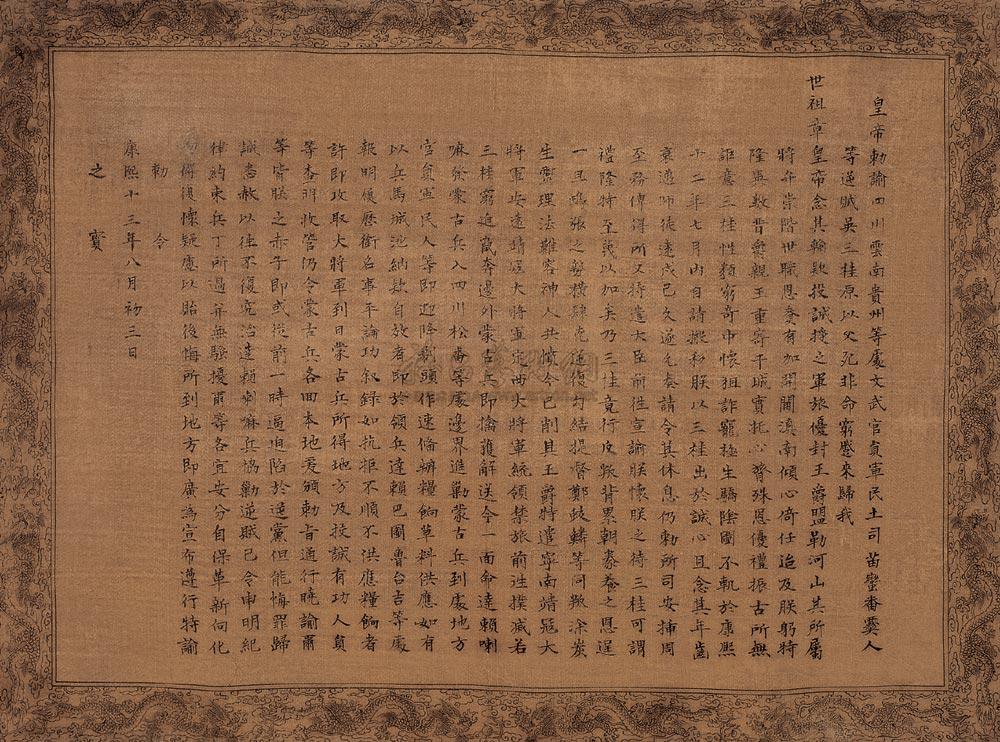 皇帝勅諭四川雲南貴州等處文武官員軍民土司苗蠻番爨人
等逆賊吳三桂原以父死非命窮蹙來歸我
世祖章皇帝念其輸欵投誠授之軍旅優封王爵盟勒河山其所屬
將弁崇階世職恩賚有加開閫滇南傾心倚任迨及朕躬特
隆異數晉爵親王重寄干城實托心膂殊恩優禮振古所無
詎意三桂性類窮奇中懷狙詐寵極生驕陰圖不軌於康熙
十二年七月內自請搬移朕以三桂出於誠心且念其年齒
衰邁師徒遠戍已久遂允奏請令其休息仍勅所司安插周
至務俾得所又特遣大臣前往宣諭朕懷朕之待三桂可謂
禮隆情至蔑以加矣乃三桂竟行反叛背累朝豢養之恩逞
一旦鴟張之勢橫肆兇逆復勾結提督鄭蛟麟等同叛涂炭
生靈理法難容神人共憤今已削其王爵特遣寧南靖寇大
將軍安遠靖寇大將軍定西大將軍統領禁旅前進撲滅若
三桂窮迫竄奔邊外蒙古兵即擒獲解送今一面命達賴喇
嘛發蒙古兵入四川松番等處邊界進勦蒙古兵到處地方
官員軍民人等即迎降剃頭作速備辦糧餉草料供應如有
以兵馬城池納欵自效者即於領兵達賴巴圖魯台吉等處
報明履歷銜名事平論功敘錄如抗拒不順不供應糧餉者
許即攻取大將軍到日蒙古兵所得地方及投誠有功人員
等查明收管仍令蒙古兵各回本地爰頒勅旨通行曉諭爾
等皆朕之赤子即或從前一時逼迫陷於逆黨但能悔罪歸
誠悉赦以往不復究治達賴喇嘛兵協勦逆賊已令申明紀
律約束兵丁所過并無騷擾爾等各宜安分自保革新向化
勿得復懷疑慮以貽後悔所到地方即廣為宣布遵行特諭
康熙十三年八月初三日
勅 令
之 寶